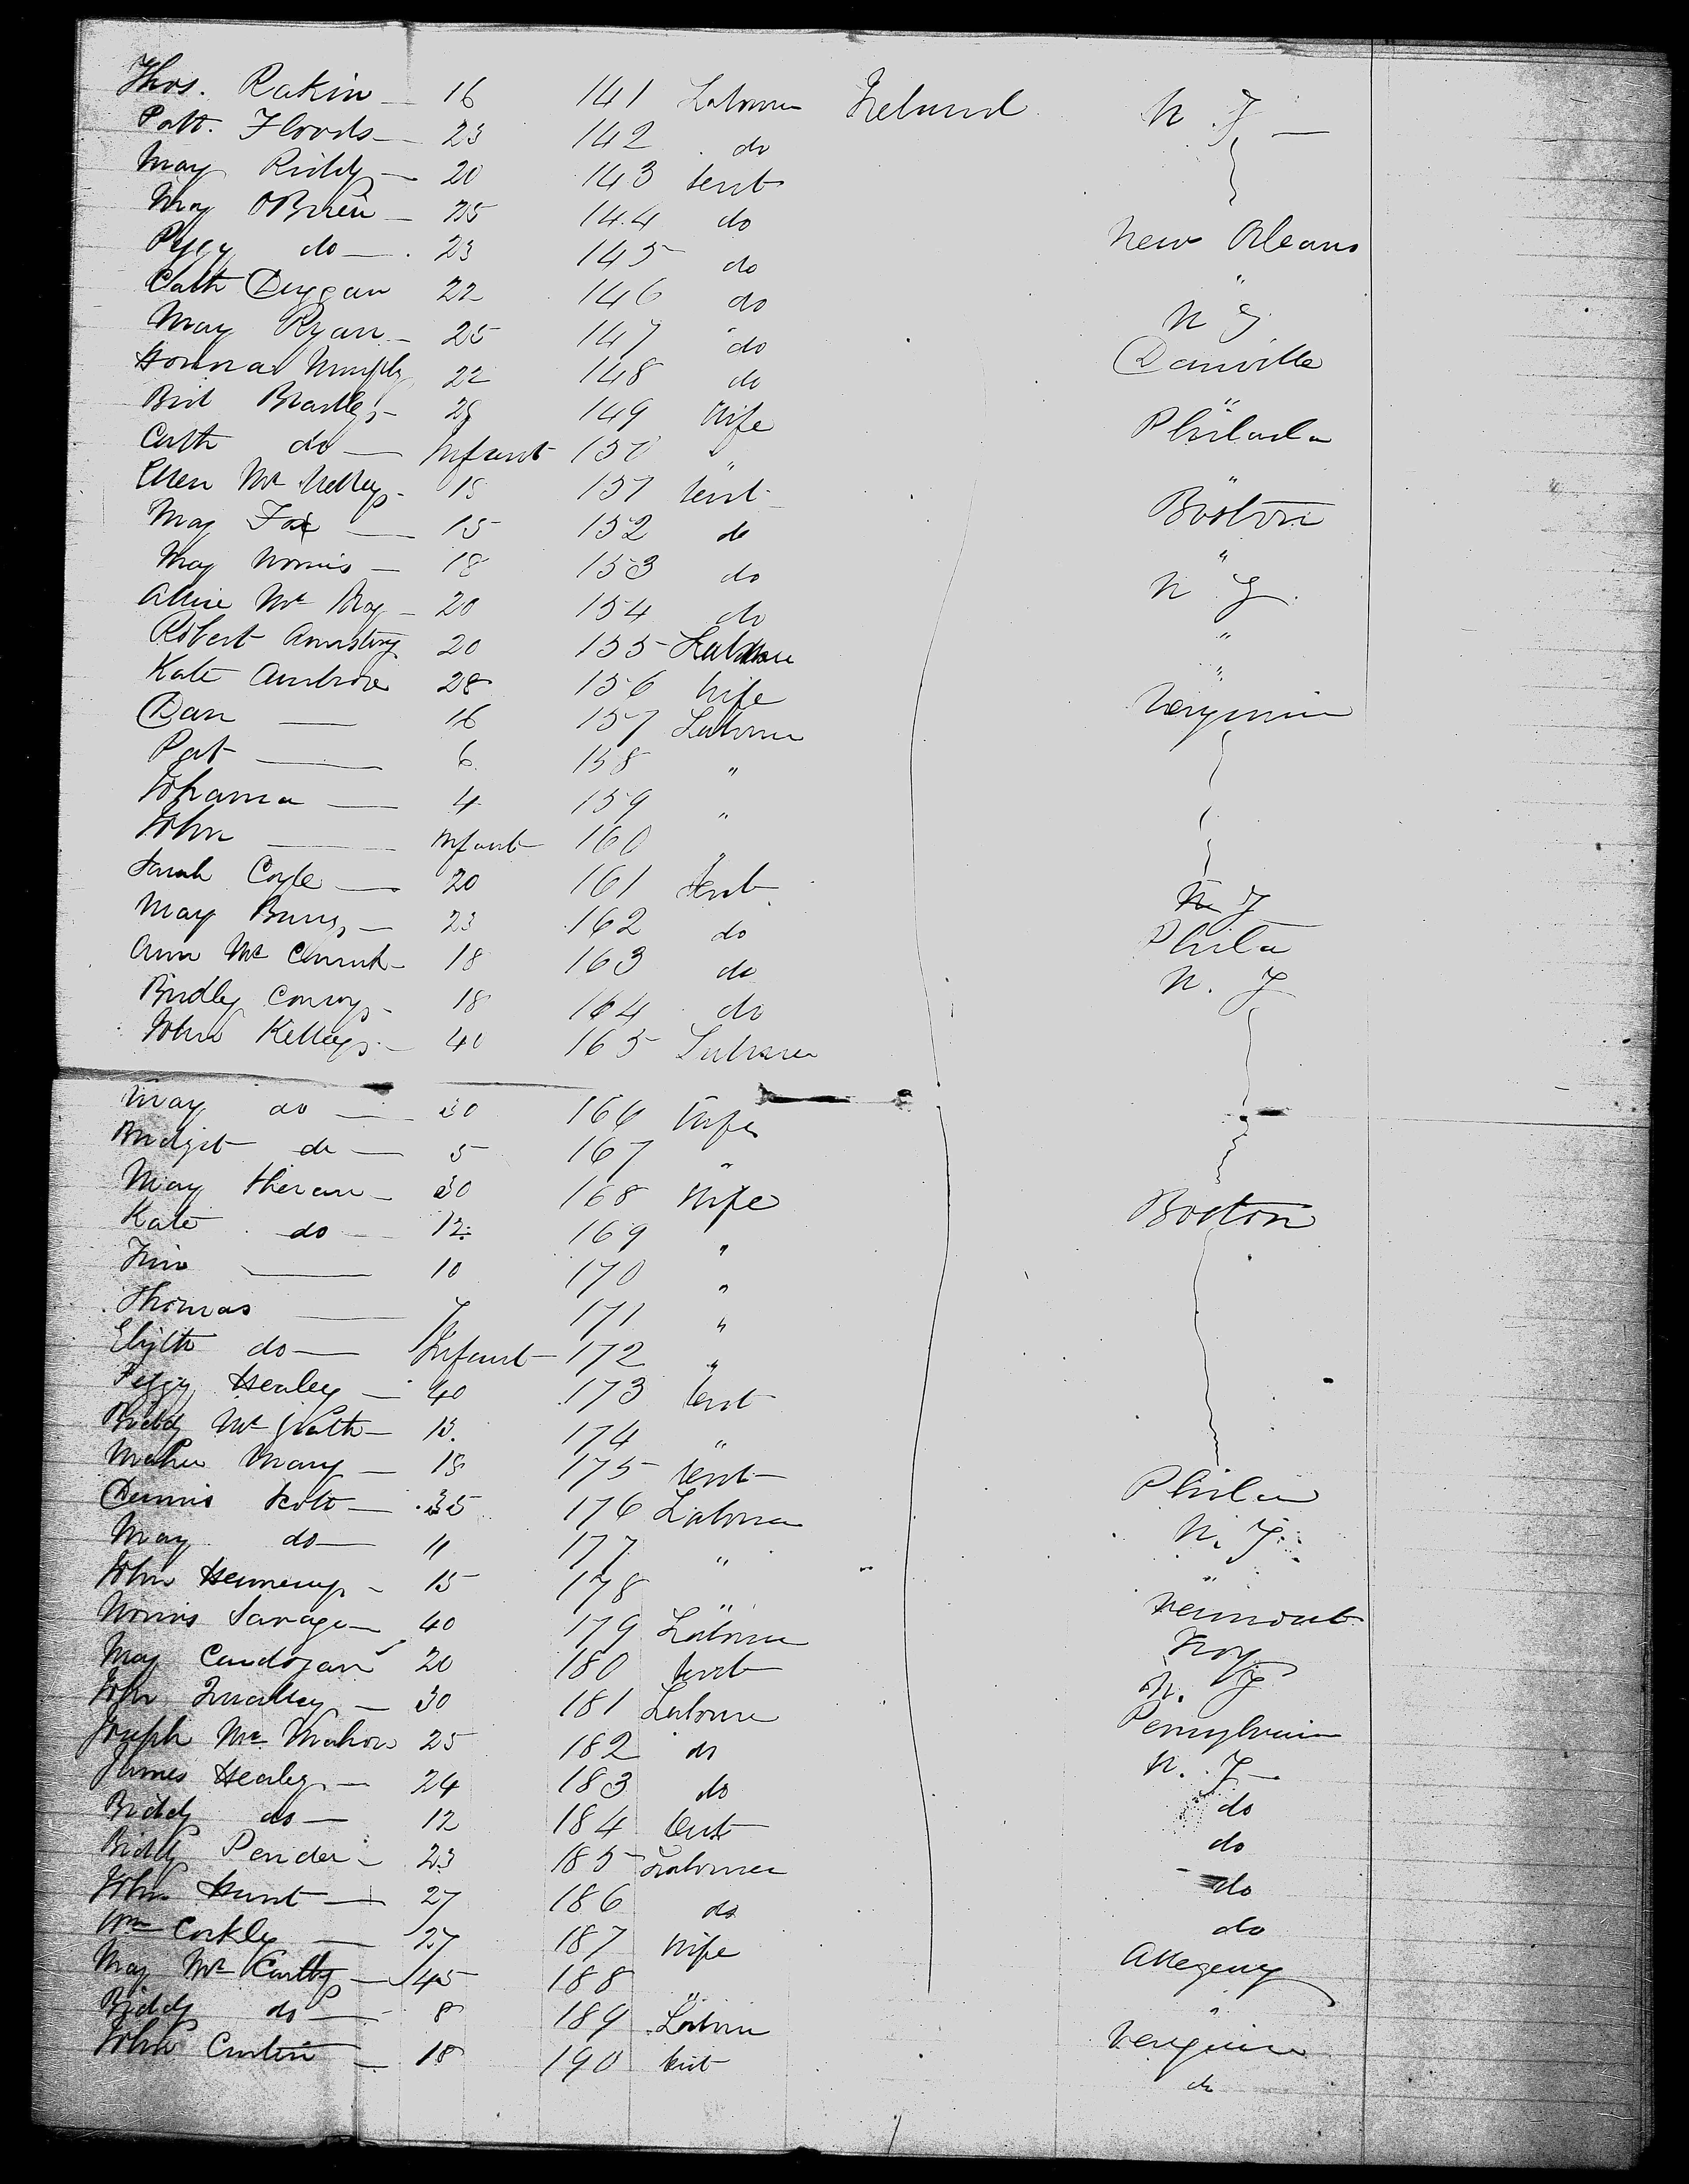 Thos. Rakin — 16 141 Laborer Ireland N. Y —
Patt. Floods — 23 142 do
May Riddy — 20 143 servt
May OBrien — 25 144 do New Orleans
Peggy do — 23 145 do "
Cath Duggan 22 146 do N Y
May Ryan — 25 147 do Danville
Honna Murphy 22 148 do "
Brid Bradley — 25 149 Wife Philada
Cath do — Infant 150 " "
Ellen Mc Kelley — 18 151 servt Boston
May Fox — 15 152 do "
May Norris — 18 153 do N Y
Allice Mc Bray — 20 154 do "
Robert Armstrong 20 155 Laborer "
Kate Ambrose 28 156 Wife Verginia
Dan — 16 157 Laborer
Pat — 6 158 "
Johanna — 4 159 "
John — Infant 160 "
Sarah Coyle — 20 161 Servt N Y
May Burns — 23 162 do Phila
Ann Mc 18 163 do N. Y
Bridley Conroy — 18 164 do
John Kelley — 40 165 Laborer
May do — 30 166 Wife
Bridgit do — 5 167 "
May — 30 168 Wife Boston
Kate do — 12 169 "
Jno — 10 170 "
Thomas — 7 171 "
Elizth do — Infant 172 "
Peggy Healey — 40 173 servt
Biddy Mc Grath — 13 174 "
Maher Mary — 18 175 servt Phila
Dennis Scott — 35 176 Laborer N. Y.
May do — 11 177 " "
John — 15 178 " Vermont
Norris Savage — 40 179 Laborer Troy
May Cardogan 20 180 servt N. Y
John Smalley — 30 181 Laborer Pensylvain
Joseph Mc Mahon 25 182 do N. Y —
James Healey — 24 183 do do
Biddy do — 12 184 servt do
Biddy Pender — 23 185 Laborer do
John Hunt — 27 186 do do
Wm Corkley — 27 187 Wife Allegeny
May Mc Carthy — 45 188 " "
Biddy do — 8 189 Laborer Verginia
John Curtin — 18 190 servt do